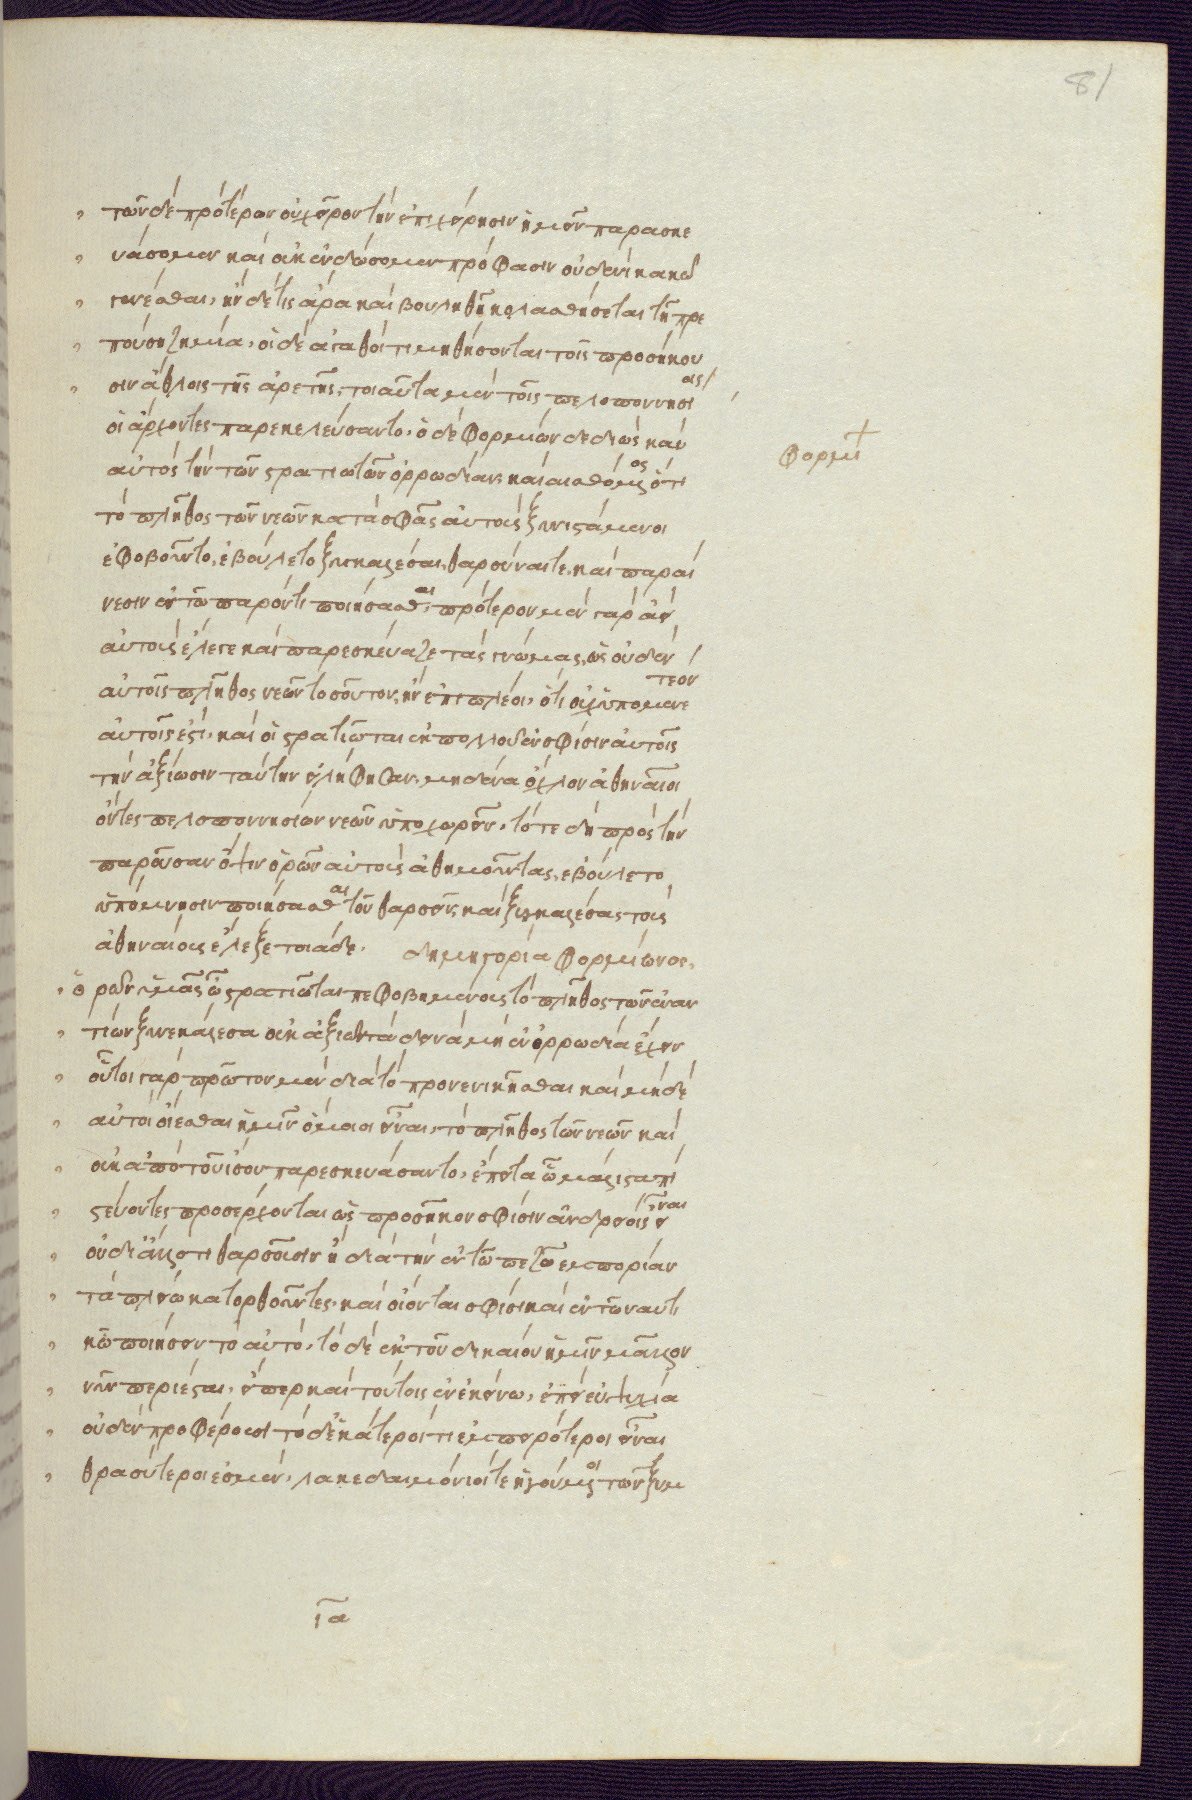 81
τῶν δὲ πρότερον οὐ χεῖρον τὴν ἐπιχείρησιν ἡμεῖς παρασκε
υάσομεν καὶ οὐκ ἐνδώσομεν πρόφασιν οὐδενὶ κακῶ
γενέσθαι· ἢν δέ τις ἄρα καὶ βουληθῆ κολασθήσεται τῆ πρε
πούση ζημία· οἱ δὲ ἀγαθοὶ τιμηθήσονται τοῖς προσήκου
σιν ἄθλοις τῆς ἀρετῆς· τοιαῦτα μὲν τοῖς πελοποννησί
οις
οἱ ἄρχοντες παρεκελεύσαντο· ὁ δὲ φορμίων δεδιὼς καὶ
φορμί
αὐτὸς τὴν τῶν στρατιωτῶν ὀρρωδίαν· καὶ αἰσθόμενος ὅτι
τὸ πλῆθος τῶν νεῶν κατὰ σφᾶς αὐτοὺς ξυνιστάμενοι
ἐφοβοῦντο, ἐβούλετο ξυγκαλέσας θαρσῦναί τε· καὶ παραί
νεσιν ἐν τῶ παρόντι ποιήσασθαι· πρότερον μὲν γὰρ ἀεὶ
αὐτοῖς ἔλεγε καὶ παρεσκεύαζε τὰς γνώμας, ὡς οὐδὲν
αὐτοῖς πλῆθος νεῶν τοσοῦτον, ἢν ἐπιπλέοι, ὅτι οὐχ ὑπομενε
τέον
αὐτοῖς ἐστί· καὶ οἱ στρατιῶται ἐκ πολλοῦ ἐν σφίσιν αὐτοῖς
τὴν ἀξίωσιν ταύτην εἰλήφησαν, μηδένα ὄχλον ἀθηναῖοι
ὄντες πελοποννησίων νεῶν ὑποχωρεῖν· τότε δὴ πρὸς τὴν
παροῦσαν ὄψιν ὁρῶν αὐτοὺς ἀθυμοῦντας, ἐβούλετο
ὑπόμνησιν ποιήσασθαι τοῦ θαρσεῖν· καὶ ξυγκαλέσας τοὺς
ἀθηναίους ἔλεξε τοιάδε. δημηγορία φορμίωνος.
ὁρῶν ὑμᾶς ὦ στρατιῶται πεφοβημένους τὸ πλῆθος τῶν ἐναν
τίων ξυνεκάλεσα οὐκ ἀξιῶν τὰ δεινὰ μὴ ἐν ὀρρωδία ἔχειν
οὗτοι γὰρ πρῶτον μὲν διὰ τὸ προνενικῆσθαι καὶ μηδὲ
αὐτοὶ οἴεσθαι ἡμῖν ὅμοιοι εἶναι, τὸ πλῆθος τῶν νεῶν καὶ
οὐκ ἀπὸ τοῦ ἴσου παρεσκευάσαντο· ἔπειτα ὧ μάλιστα πι
στεύοντες προσέρχονται ὡς προσῆκον σφίσιν ἀνδρείοις εἶναι
οὐ δι' ἄλλο τι θαρσοῦσιν ἢ διὰ τὴν ἐν τῶ πεζῶ ἐμπειρίαν
τὰ πλείω κατορθοῦντες· καὶ οἴονται σφίσι καὶ ἐν τῶ ναυτι
κῶ ποιήσειν τὸ αὐτό· τὸ δὲ ἐκ τοῦ δικαίου ἡμῖν μᾶλλον
νῦν περιέσται, εἴπερ καὶ τούτοις ἐν ἐκείνω, ἐπεὶ εὐψυχία
οὐδὲν προφέρουσι τὸ δὲ ἑκάτεροί τι ἐμπειρότεροι εἶναι
θρασύτεροι ἐσμέν· λακεδαιμόνιοί τε ἡγούμενοι τῶν ξυμ
ια